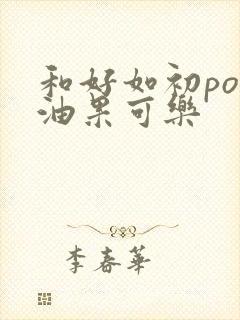 和好如初po
油果可樂
李春華